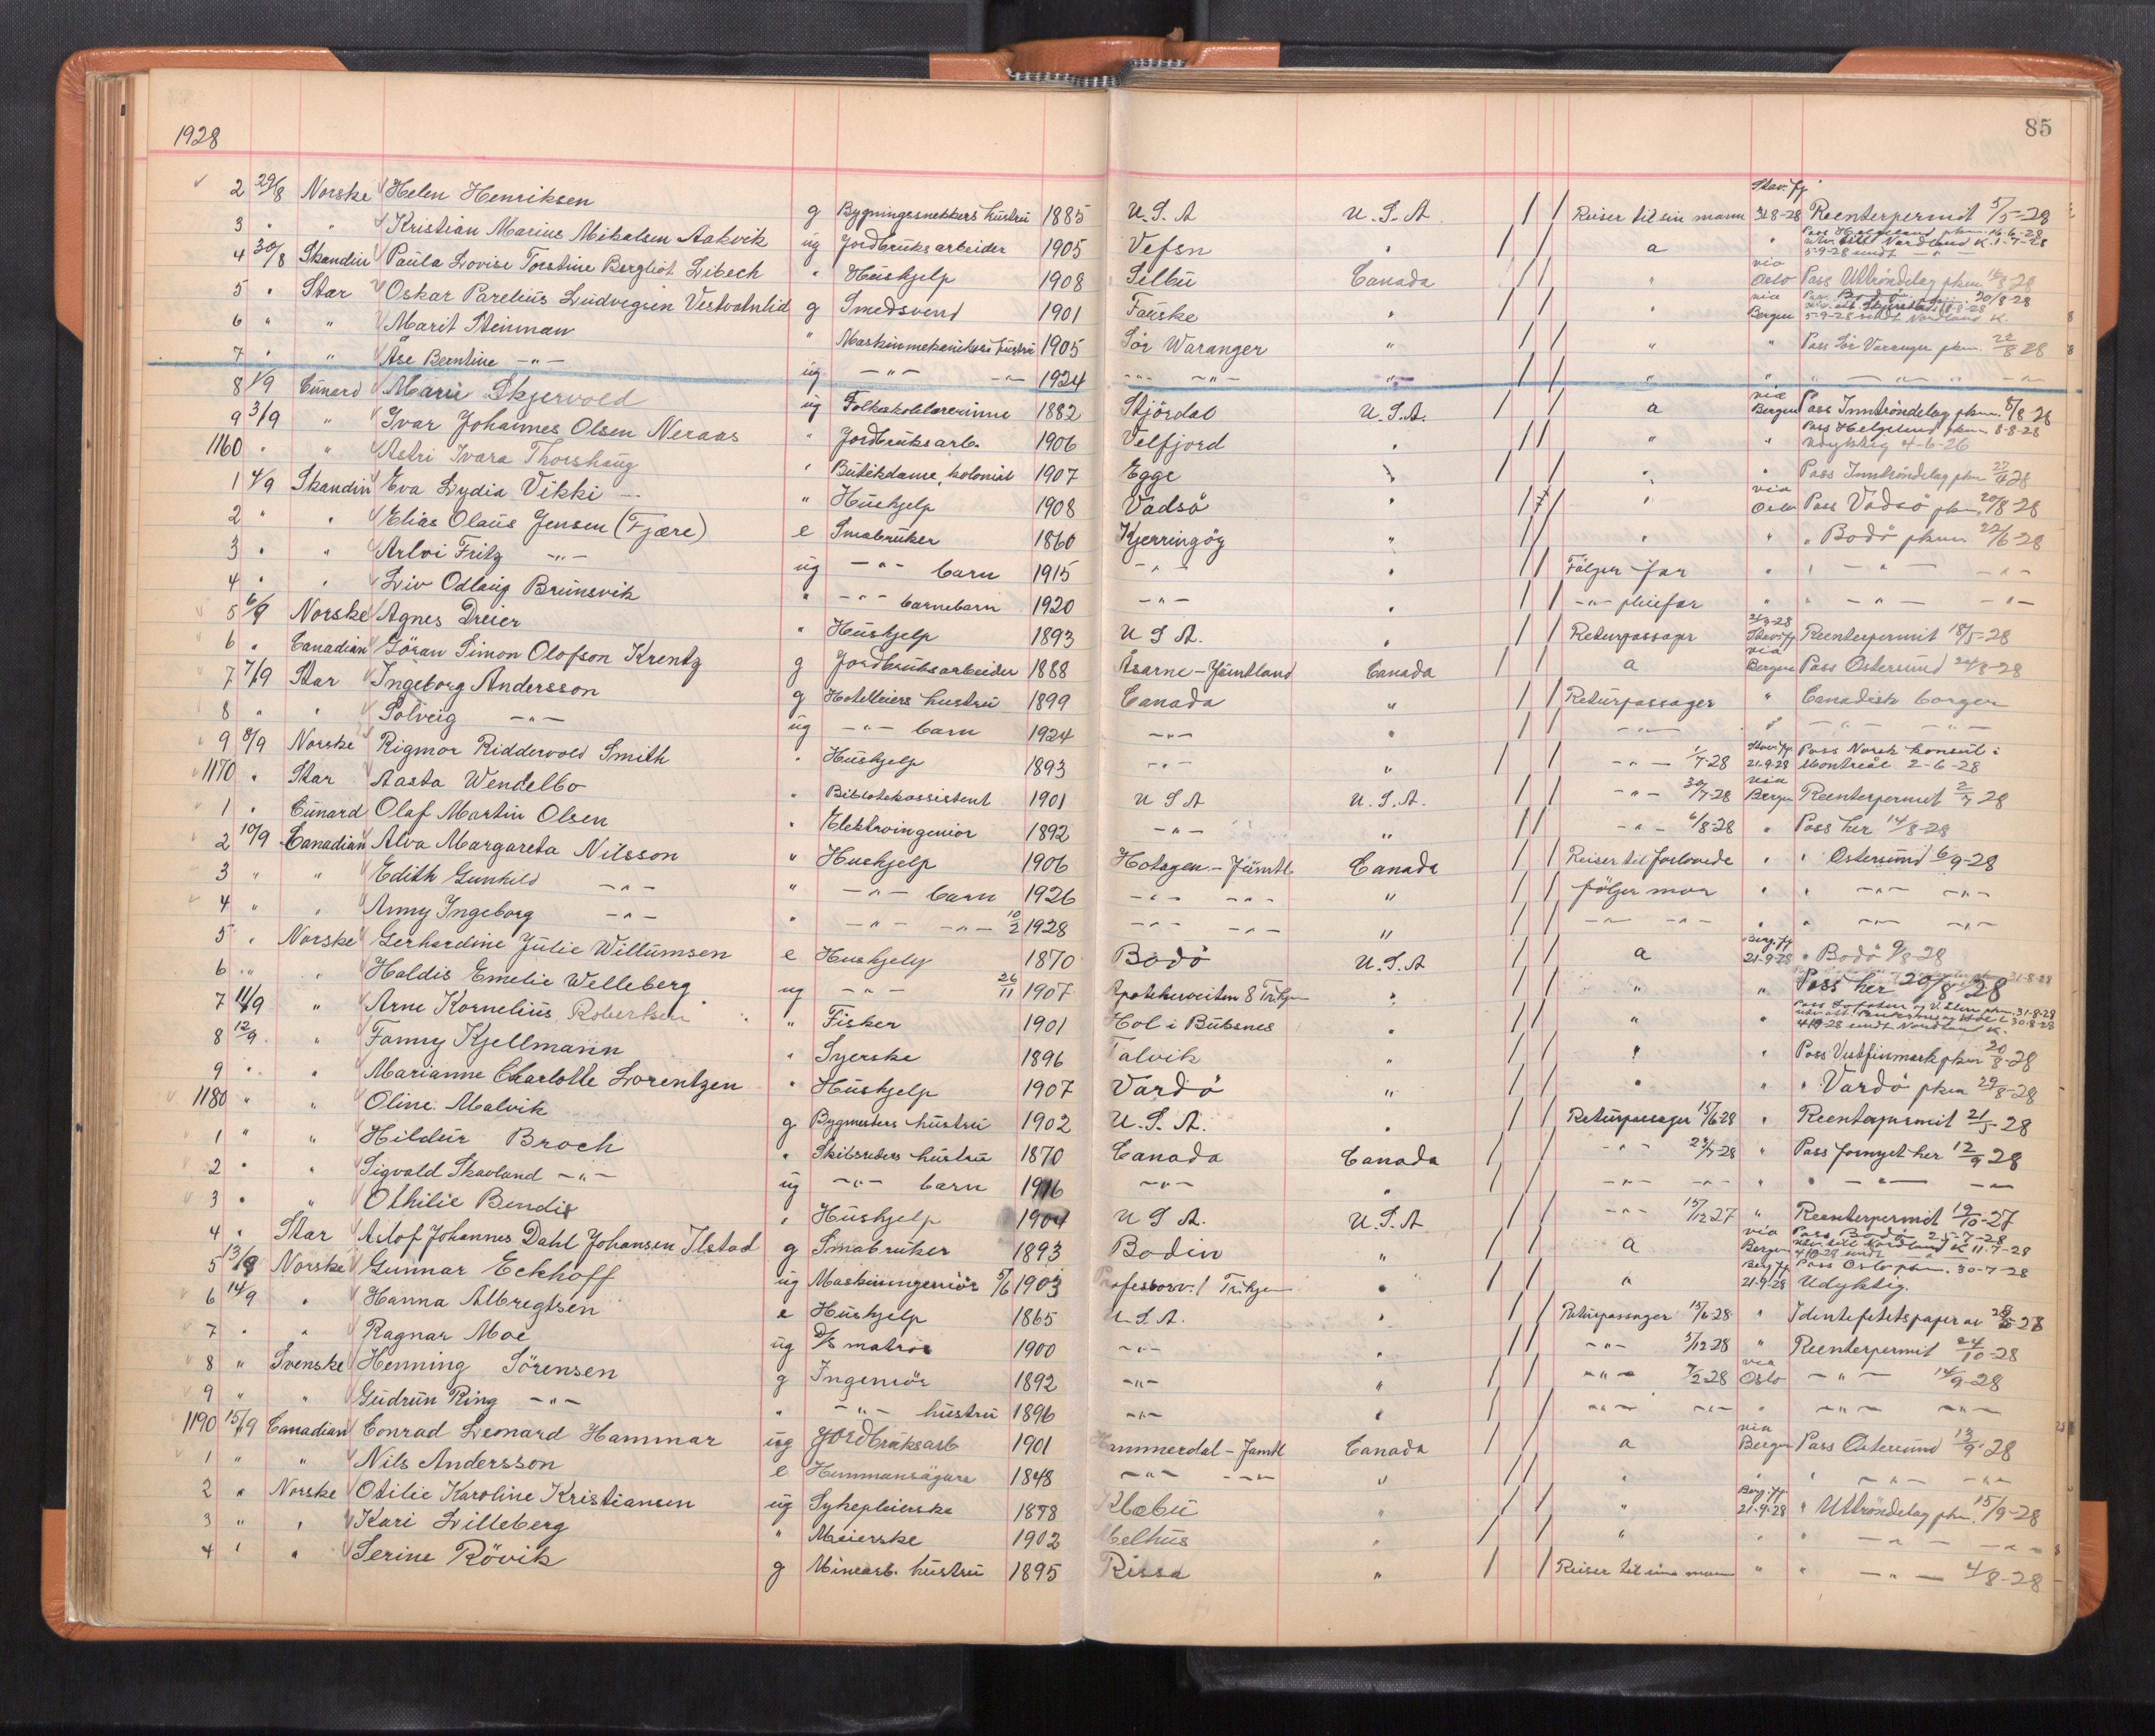 1928
85
2 29/8 Norske Helen Henriksen g Bygningssnekkers hustru 1885 U.S.A U.S.A. Reiser til sin mann Stav.fj 31.8-28 Reenterpermit 5/5-28
3 " " Kristian Marius Mikalsen Aakvik ug Jordbruksarbeider 1905 Vefsn " a " Pass Helgeland pkm. 16-6-28 utv. till Nordland K. 1-7-28 5-9-28 sendt - " -
4 30/8 Skandin Paula Lovise Torstine Bergliot Libech " Hushjelp 1908 Selbu Canada " via Oslo Pass Uttröndelag pkm.
5 " Star Oskar Parelius Ludvigsen Vestvatnlid g Smedsvend 1901 Fauske " " via Bergen 20/8-28 5-9-28 sendt Nordland K.
6 " " Marit Steinman " Maskinmekanikers hustru 1905 Sör Waranger " " " Pass Sör Varanger pkm. 22/8 28
7 " " Åse Berntine -"- ug -"- -"- 1924 -"- -"- " " " " -"- -"-
8 1/9 Cunard Marie Skjervold ug Folkeskolelærerinne 1882 Stjördal U.S.A. a via Bergen Pass Inntröndelag pkm. 8/8-28
9 3/9 " Ivar Johannes Olsen Neraas " Jordbruksarb. 1906 Velfjord " " " Pass Helgeland pkm 8-8-28 udyktig 4-6-26
1160 " " Astri Ivara Thorshaug " Butikdame, kolonial 1907 Egge " " " Pass Inntröndelag pkm
1 4/9 Skandin Eva Lydia Vikki " Hushjelp 1908 Vadsö " " via Oslo Pass Vadsö pkm. 20/8-28
2 " " Elias Olaus Jensen (Fjære) e Smabruker 1860 Kjerringöy " " " " Bodö pkm 22/6-28
3 " " Arlvi Fritz -"- ug -"- barn 1915 -"- " Fölger far " " -"- -"-
4 " " Liv Odlaug Brunsvik " -"- barnebarn 1920 -"- " -"- pleiefar " " -"- -"-
5 6/9 Norske Agnes Dreier " Hushjelp 1893 U S A. " Returpassager Stav.fj Reenterpermit 18/5-28
6 " Canadian Göran Simon Olofson Krentz g Jordbruksarbeider 1888 Åsarne-Jämtland Canada a via Bergen Pass Östersund 24/8-28
7 7/9 Star Ingeborg Andersson g Hotelleiers hustru 1899 Canada " Returpassager " Canadisk borger
8 " " Solveig -"- ug -"- barn 1924 -"- " -"- " -"- -"-
9 8/9 Norske Rigmor Riddervold Smith " Hushjelp 1893 -"- " -"- 1/7-28 Stav.fj 21.9.28 Pass Norsk konsul i Montreal 2-6-28
1170 " Star Aasta Wendelbo " Bibliotekassistent 1901 U S A U.S.A. -"- 30/7-28 via Bergen Reenterpermit 2/7 28
1 " Cunard Olaf Martin Olsen " Elektroingeniør 1892 -"- " -"- 6/8-28 " Pass her 14/8-28
2 10/9 Canadian Alva Margareta Nilsson " Hushjelp 1906 Hotagen-Jämtl. Canada Reiser til forlovede " " Östersund 6/9-28
3 " " Edith Gunhild -"- " -"- barn 1926 -"- -"- " fölger mor " " -"- -"-
4 " " Anny Ingeborg -"- " -"- -"- 10/2 1928 -"- -"- " -"- -"- " " -"- -"-
5 " Norske Gerhardine Julie Willumsen e Hushjelp 1870 Bodö U.S.A a Berg.fj 21-9-28 " Bodö 9/8-28
6 " " Haldis Emelie Welleberg ug -"- 26/11 1907 Apotekerveiten 8 Trhjem " " " Pass her 20/8 28
7 11/9 " Arne Kornelius Robertsen " Fisker 1901 Hol i Buksnes " " " 31-8-28 30-8-28 sendt Nordland K.
8 12/9 " Fanny Kjellmann " Syerske 1896 Talvik " " " Pass Vestfinmark pkm 20/8-28
9 " " Marianne Charlotte Lorentzen " Hushjelp 1907 Vardö " " " " Vardö pkm 29/8-28
1180 " " Oline Malvik g Bygmesters hustru 1902 U.S.A. " Returpassager 15/6-28 " Reenterpermit 21/5-28
1 " " Hildur Broch " Skibsreders hustru 1870 Canada Canada -"- " Pass fornyet her 12/9 28
2 " " Sigvald Skavland -"- ug -"- barn 1916 -"- " -"- -"- " " -"- -"-
3 " " Othilie Bendix " Hushjelp 1904 U S A. U.S.A -"- 15/12 27 " Reenterpermit 19/10-27
4 " Star Aslof Johannes Dahl Johansen Ilstad g Smabruker 1893 Bodin " a via Bergen Pass Bodin 25-7-28 utv. till Nordland K 11-7-28 sendt
5 13/9 Norske Gunnar Eckhoff ug Maskiningeniör 5/6 1903 Professorv. 1 Trhjem " " Berg.fj 21-9-28 Pass Oslo pkm. 30-7-28 Udyktig.
6 14/9 " Hanna Albregtsen e Hushjelp 1865 U.S.A. " Returpassager 15/6-28 " Identitetspaper av
7 " " Ragnar Moe ug D/S matros 1900 -"- " -"- 5/12-28 " Reenterpermit 24/10-28
8 " Svenske Henning Sörensen g Ingeniör 1892 -"- " -"- 7/2-28 via Oslo -"- 14/9-28
9 " " Gudrun Ring -"- " -"- hustru 1896 -"- " -"- -"- " -"- -"-
1190 15/9 Canadian Conrad Leonard Hammar ug Jordbruksarb 1901 Hammerdal-Jamtl Canada a via Bergen Pass Östersund 13/9-28
1 " " Nils Andersson e Hemmansägare 1848 -"- -"- " " " " -"- -"-
2 " Norske Otilie Karoline Kristiansen ug Sykepleierske 1878 Klæbu " " Berg.fj 21-9-28 " Uttröndelag pkm. 15/9-28
3 " " Kari Lilleberg " Meierske 1902 Melhus " " " " -"- -"-
4 " " Serine Rövik g Minearb. hustru 1895 Rissa " Reiser til sin mann " " -"- 4/8-28